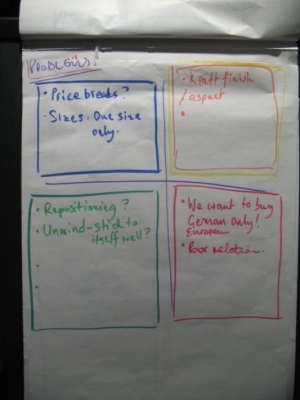 PROBLEMS!
• Price breaks?
• Sizes. One size
only.
• Kraft finish
/aspect
•
• Repositioning?
• Unwind - stick to
itself well?
•
•
• We want to buy
German only!
European
• Poor relation.